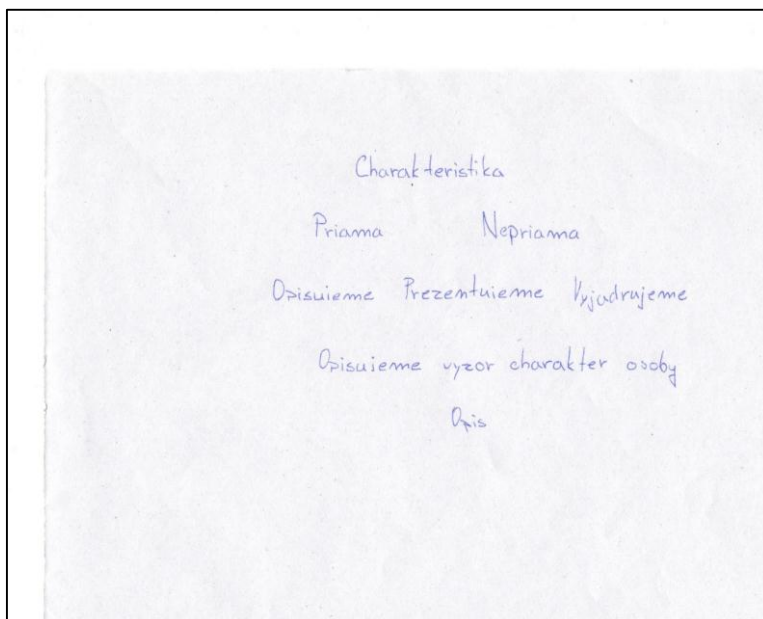 Charakteristika
Priama Nepriama
Opisuieme Prezentuieme Vyjadrujeme
Opisuieme vyzor charakter osoby
Opis